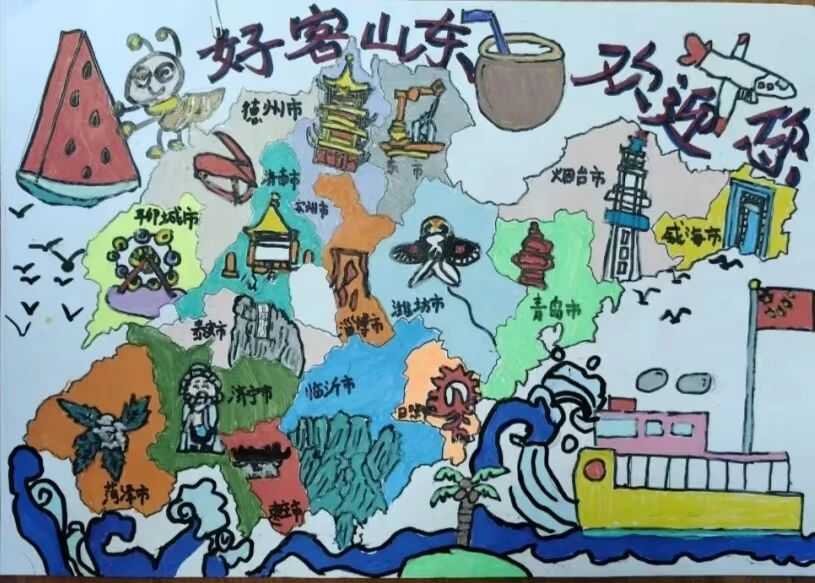 好客山东
欢迎您
德州市
济南市
烟台市
聊城市
威海市
潍坊市
青岛市
泰安市
淄博市
济宁市
临沂市
菏泽市
枣庄市